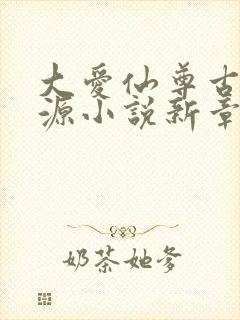 大爱仙尊古
源小说新章
奶茶她爹